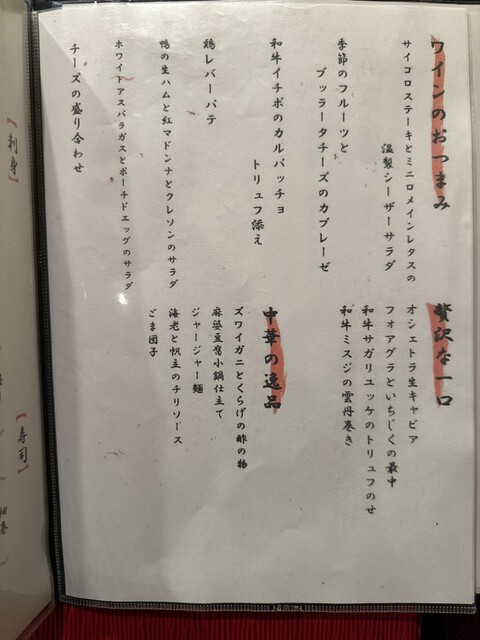 ワインのおつまみ
サイコロステーキとミニロメインレタスの
温製シーザーサラダ
季節のフルーツと
ブッラータチーズのカプレーゼ
和牛イチボのカルパッチョ
トリュフ添え
鶏レバーパテ
鴨の生ハムと紅マドンナとクレソンのサラダ
ホワイトアスパラガスとポーチドエッグのサラダ
チーズの盛り合わせ
贅沢な一口
オシェトラ生キャビア
フォアグラといちじくの最中
和牛サガリユッケのトリュフのせ
和牛ミスジの雲丹巻き
中華の逸品
ズワイガニとくらげの酢の物
麻婆豆腐小鍋仕立て
ジャージャー麺
海老と帆立のチリソース
ごま団子
[刺身]
[寿司]